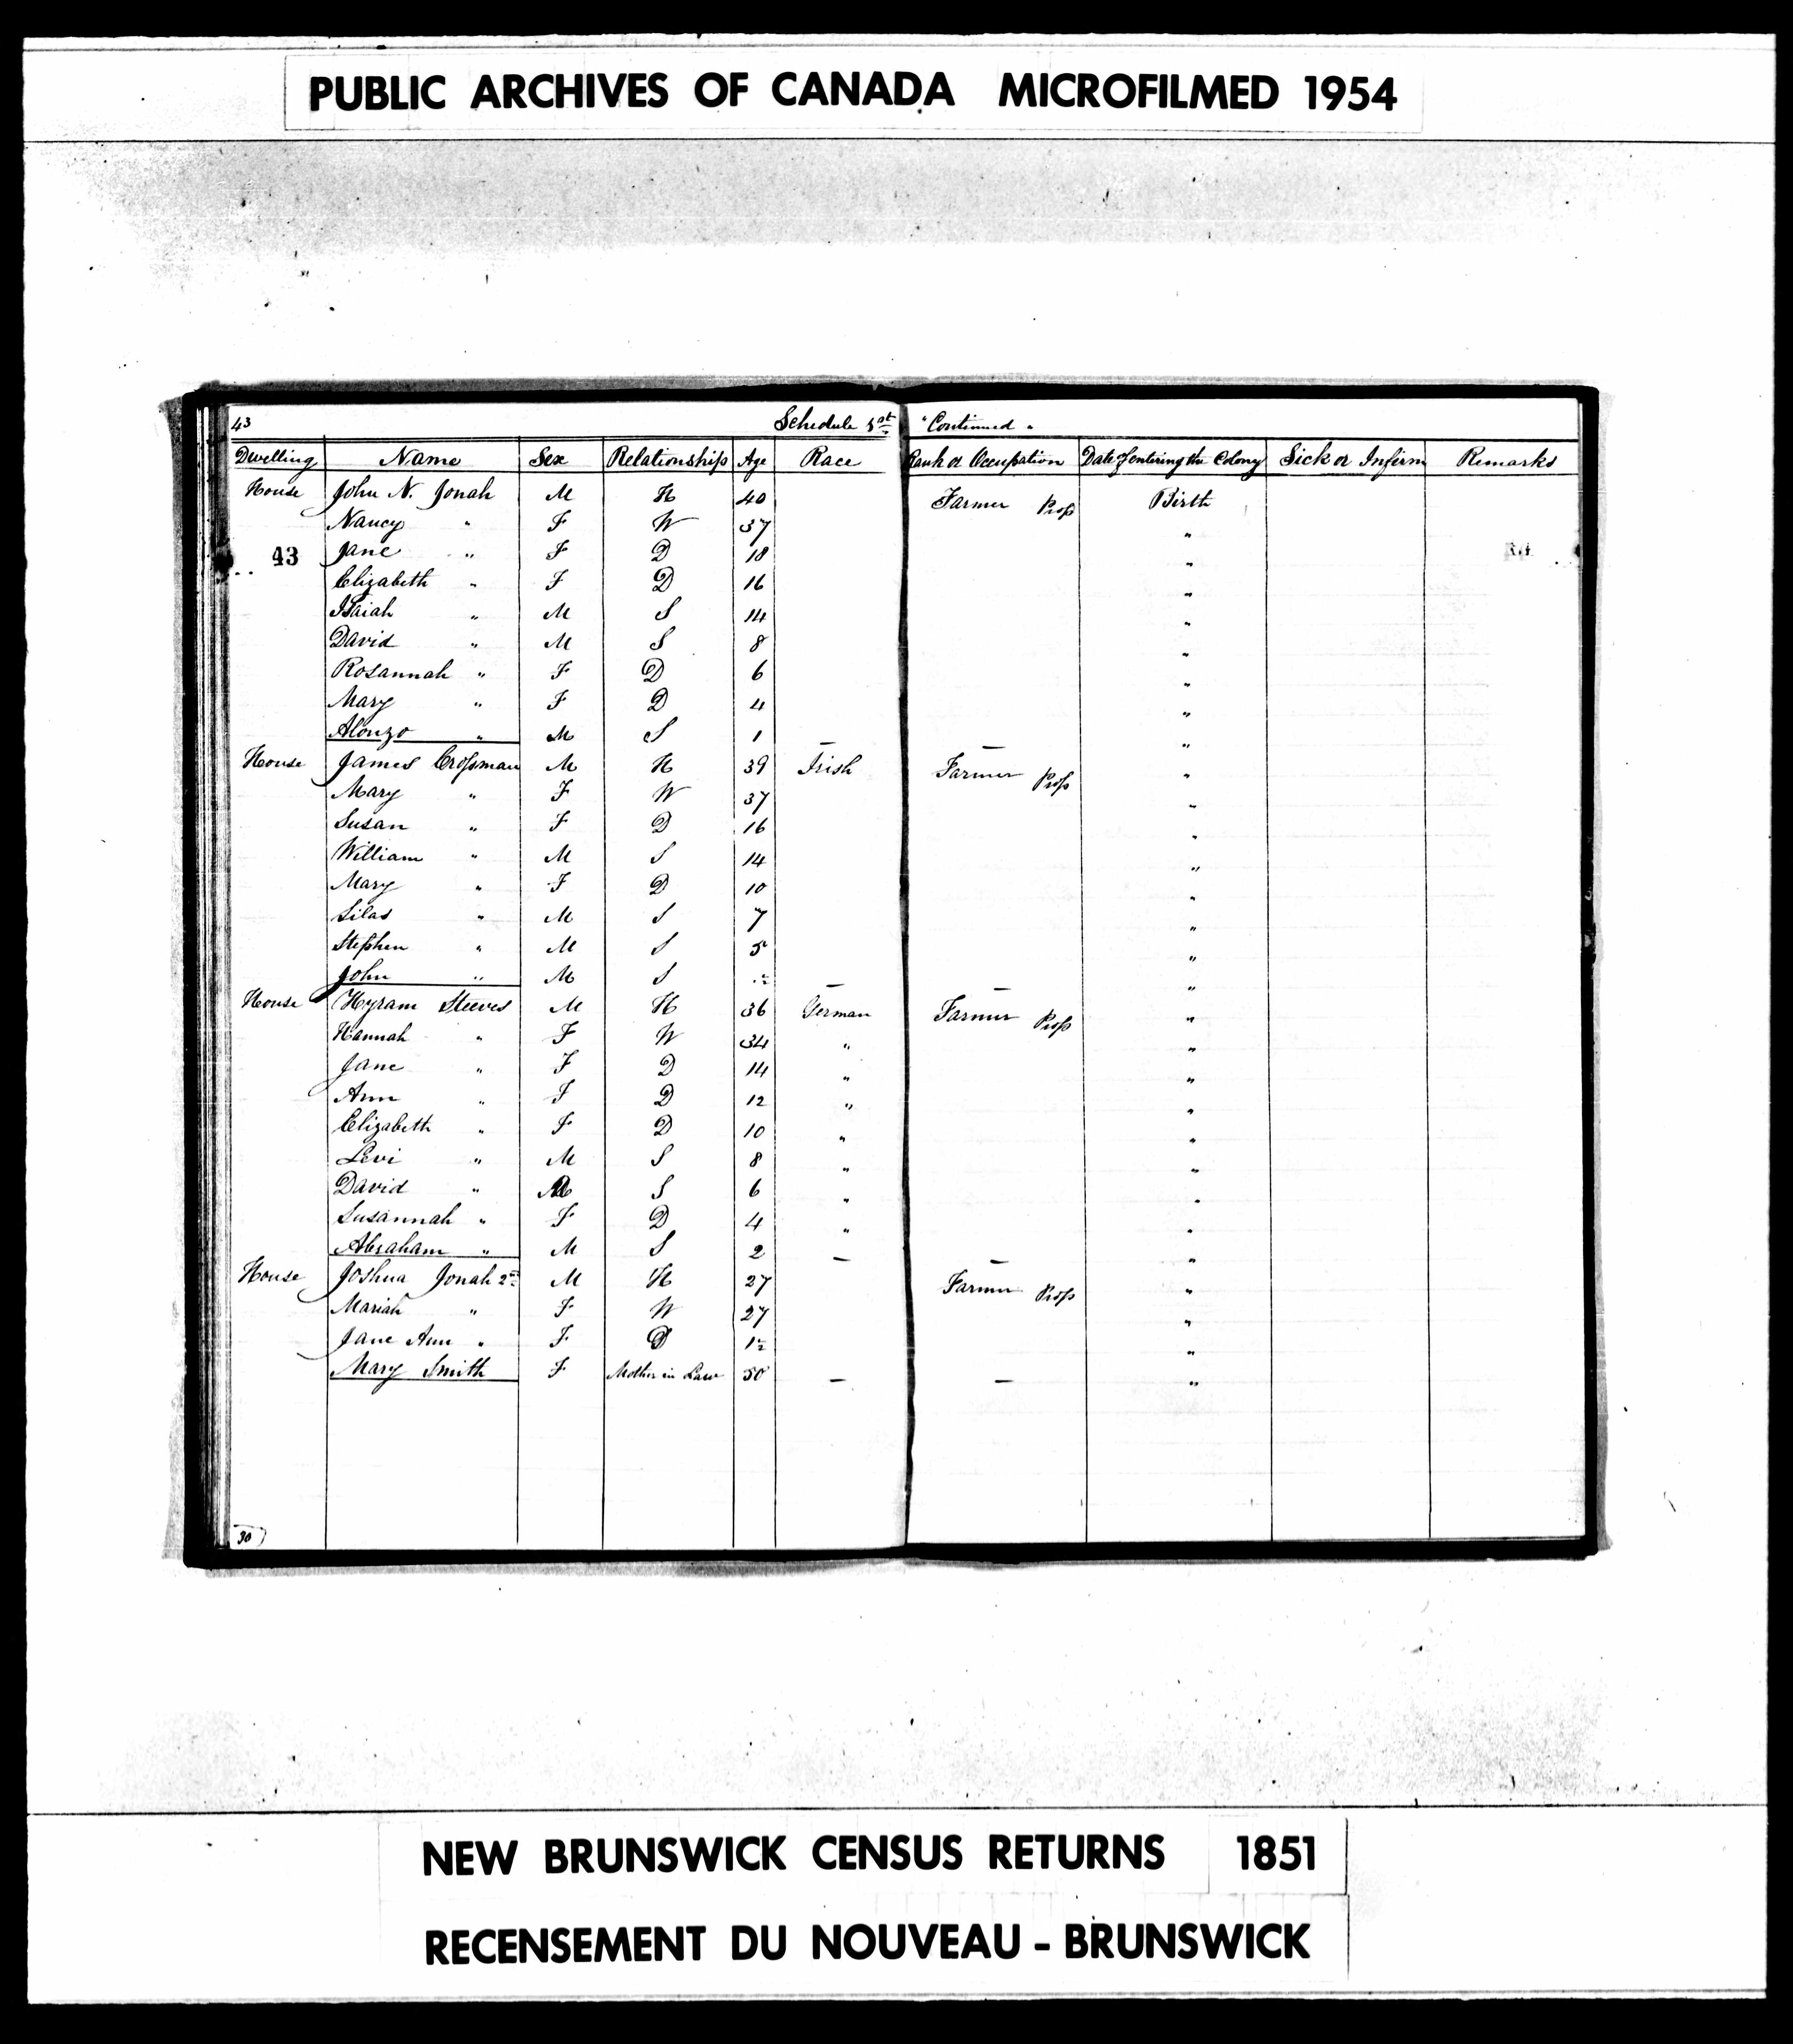 PUBLIC ARCHIVES OF CANADA MICROFILMED 1954
43 Schedule 1st "Continued"
Dwelling Name Sex Relationship Age Race Rank or Occupation Date of entering the Colony Sick or Infirm Remarks
House John N. Jonah M H 40 Farmer Prop Birth
Nancy " F W 37 "
43 Jane " F D 18 "
Elizabeth " F D 16 "
Isaiah " M S 14 "
David " M S 8 "
Rosannah " F D 6 "
Mary " F D 4 "
Alonzo " M S 1 — — "
House James Crossman M H 39 Irish Farmer Prop "
Mary " F W 37 "
Susan " F D 16 "
William " M S 14 "
Mary " F D 10 "
Silas " M S 7 "
Stephen " M S 5 "
John " M S — — "
House Hyram Steeves M H 36 German Farmer Prop "
Hannah " F W 34 " "
Jane " F D 14 " "
Ann " F D 12 " "
Elizabeth " F D 10 " "
Levi " M S 8 " "
David " M S 6 " "
Susannah " F D 4 " "
Abraham " M S 2 — — "
House Joshua Jonah 2nd M H 27 Farmer Prop "
Mariah " F W 27 "
Jane Ann " F D "
Mary Smith F Mother in Law 50 — — "
30
NEW BRUNSWICK CENSUS RETURNS 1851
RECENSEMENT DU NOUVEAU - BRUNSWICK